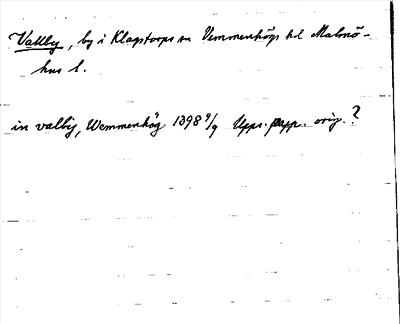 Vallby, by i Klagstorps sn Vemmenhögs hd Malmö-
hus l.
in valby, Wemmenhög 1398 9/9 Upps. papp. orig. ?